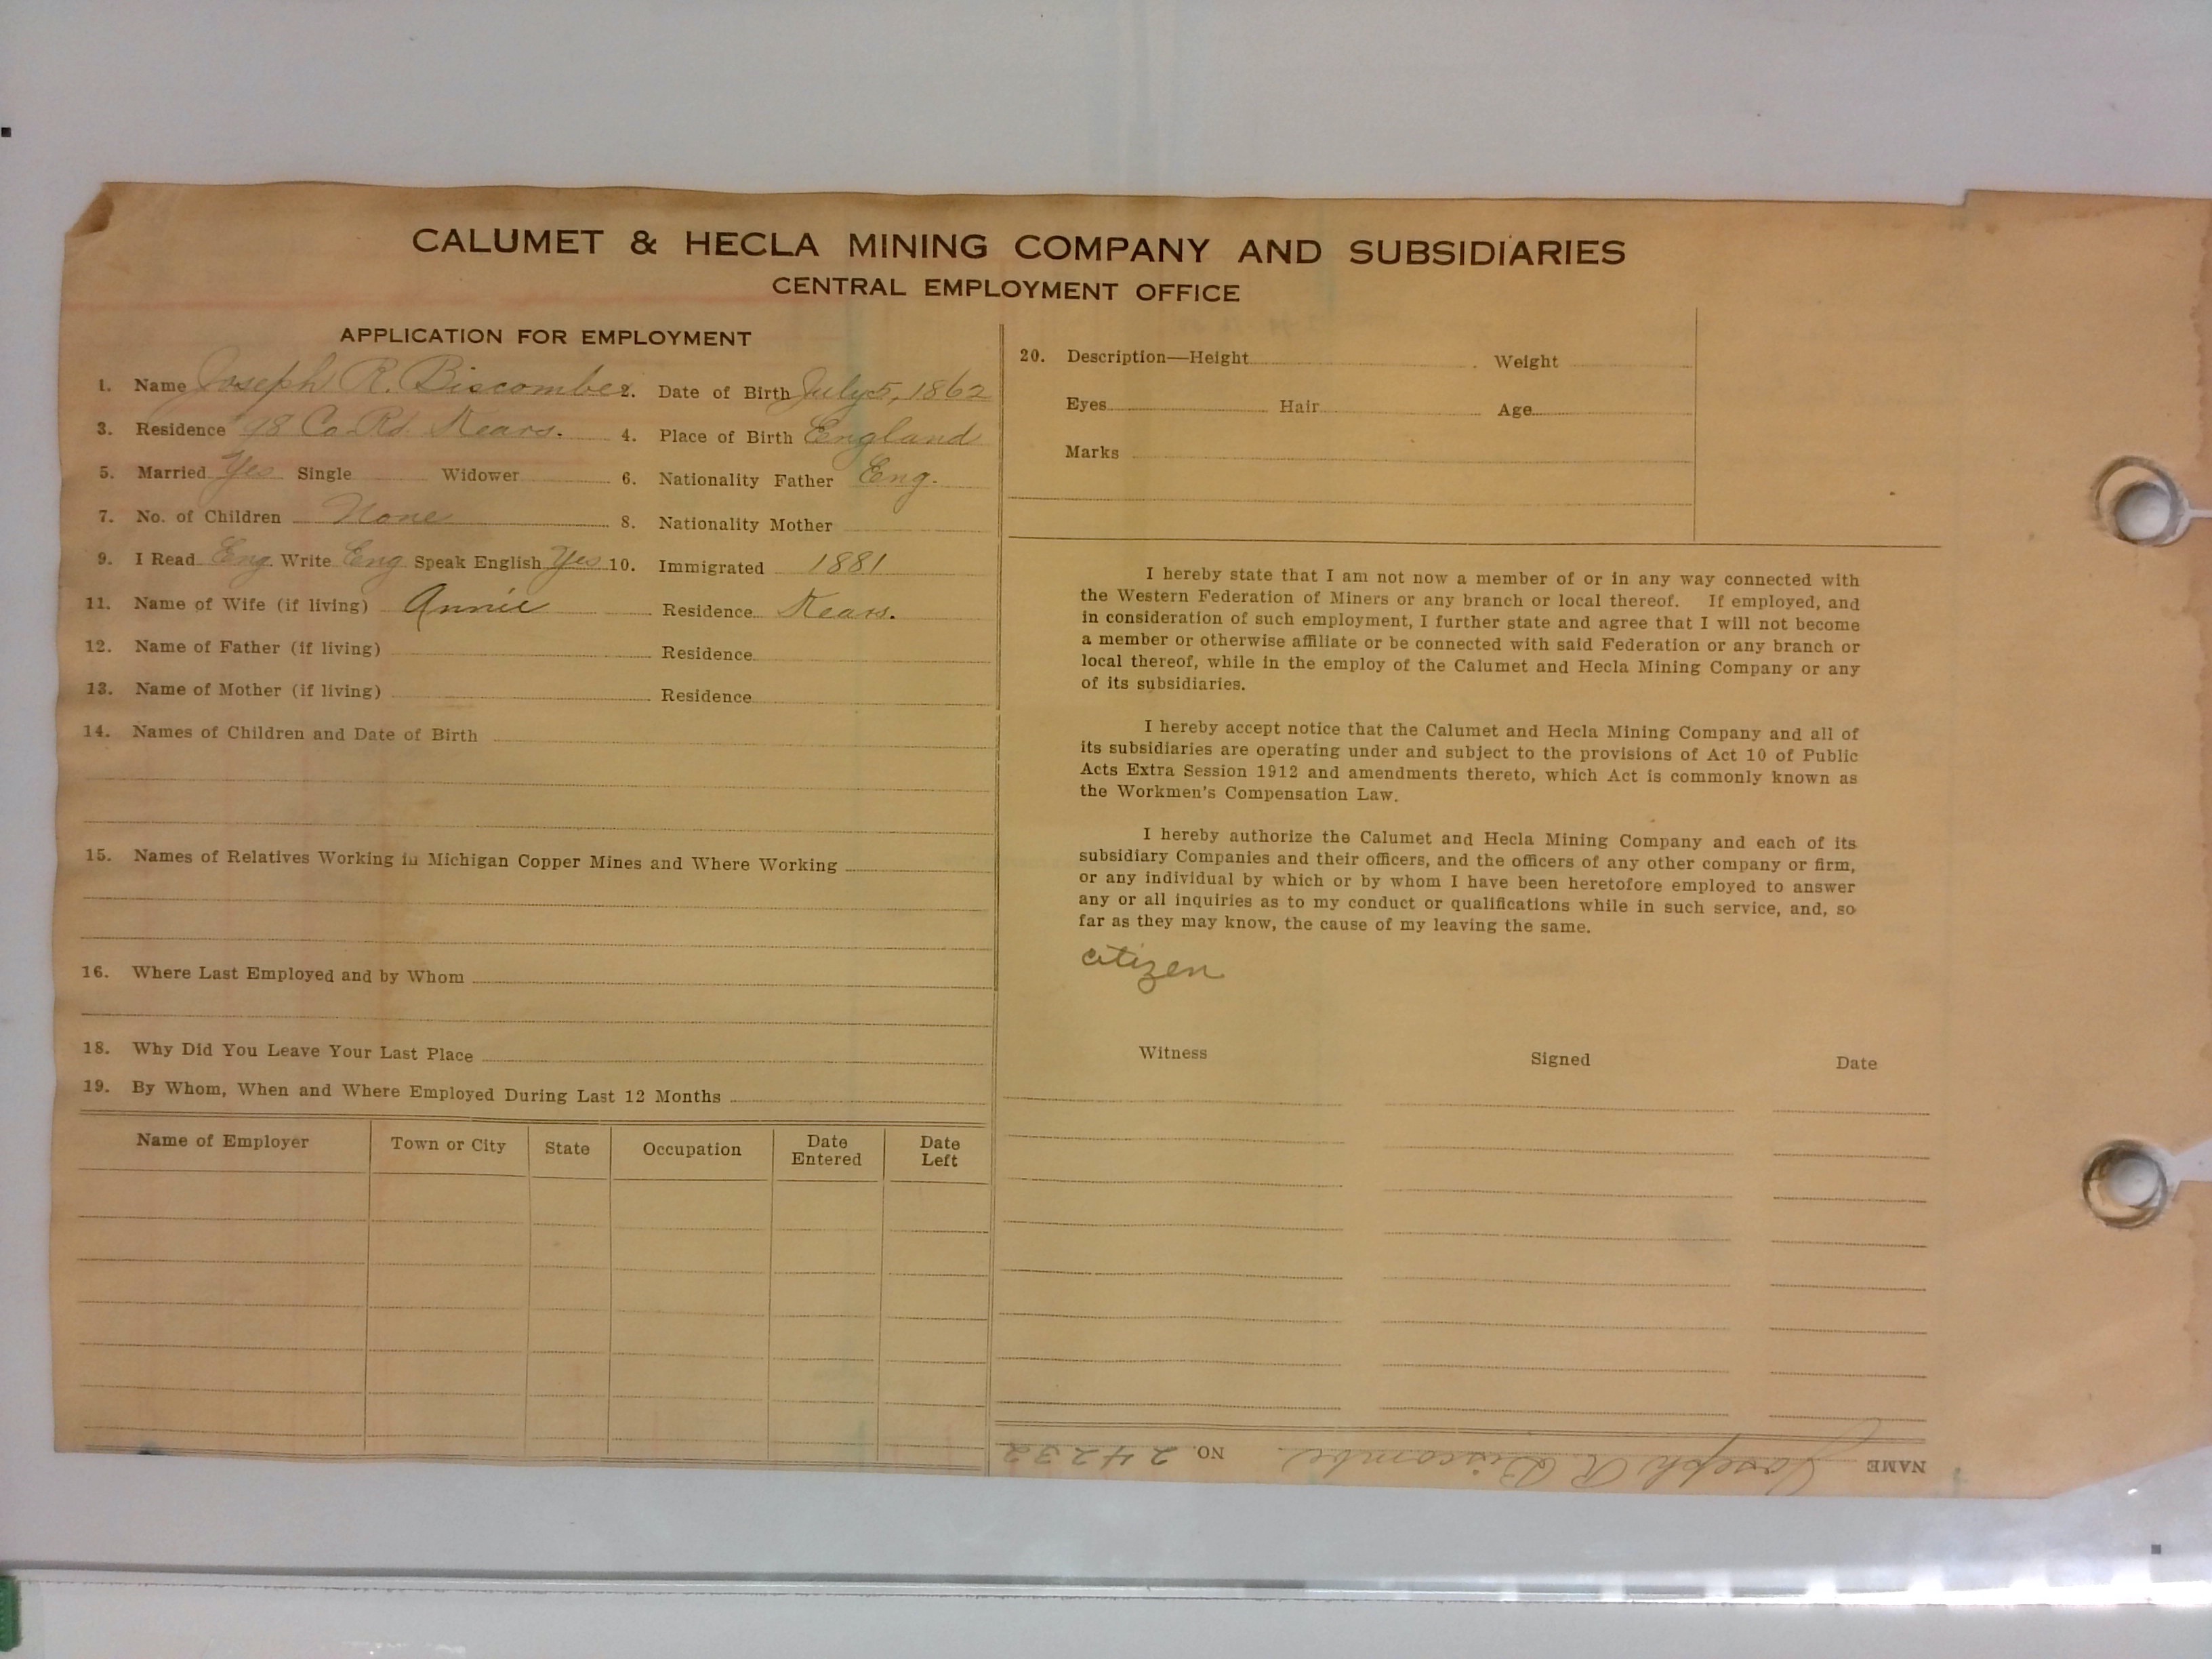 CALUMET & HECLA MINING COMPANY AND SUBSIDIARIES
CENTRAL EMPLOYMENT OFFICE
APPLICATION FOR EMPLOYMENT
1. Name Joseph R. Biscombe 2. Date of Birth July 5, 1862
3. Residence 98 Co. Rd. Kears. 4. Place of Birth England
5. Married Yes Single Widower 6. Nationality Father Eng.
7. No. of Children None 8. Nationality Mother
9. I Read Eng. Write Eng Speak English Yes 10. Immigrated 1881
11. Name of Wife (if living) Annie Residence Kears.
12. Name of Father (if living) Residence
13. Name of Mother (if living) Residence
14. Names of Children and Date of Birth
15. Names of Relatives Working in Michigan Copper Mines and Where Working
16. Where Last Employed and by Whom
18. Why Did You Leave Your Last Place
19. By Whom, When and Where Employed During Last 12 Months
Name of Employer Town or City State Occupation Date Entered Date Left
20. Description—Height Weight
Eyes Hair Age
Marks
I hereby state that I am not now a member of or in any way connected with
the Western Federation of Miners or any branch or local thereof. If employed, and
in consideration of such employment, I further state and agree that I will not become
a member or otherwise affiliate or be connected with said Federation or any branch or
local thereof, while in the employ of the Calumet and Hecla Mining Company or any
of its subsidiaries.
I hereby accept notice that the Calumet and Hecla Mining Company and all of
its subsidiaries are operating under and subject to the provisions of Act 10 of Public
Acts Extra Session 1912 and amendments thereto, which Act is commonly known as
the Workmen's Compensation Law.
I hereby authorize the Calumet and Hecla Mining Company and each of its
subsidiary Companies and their officers, and the officers of any other company or firm,
or any individual by which or by whom I have been heretofore employed to answer
any or all inquiries as to my conduct or qualifications while in such service, and, so
far as they may know, the cause of my leaving the same.
citizen
Witness Signed Date
NAME Joseph R. Biscombe. NO. 24232